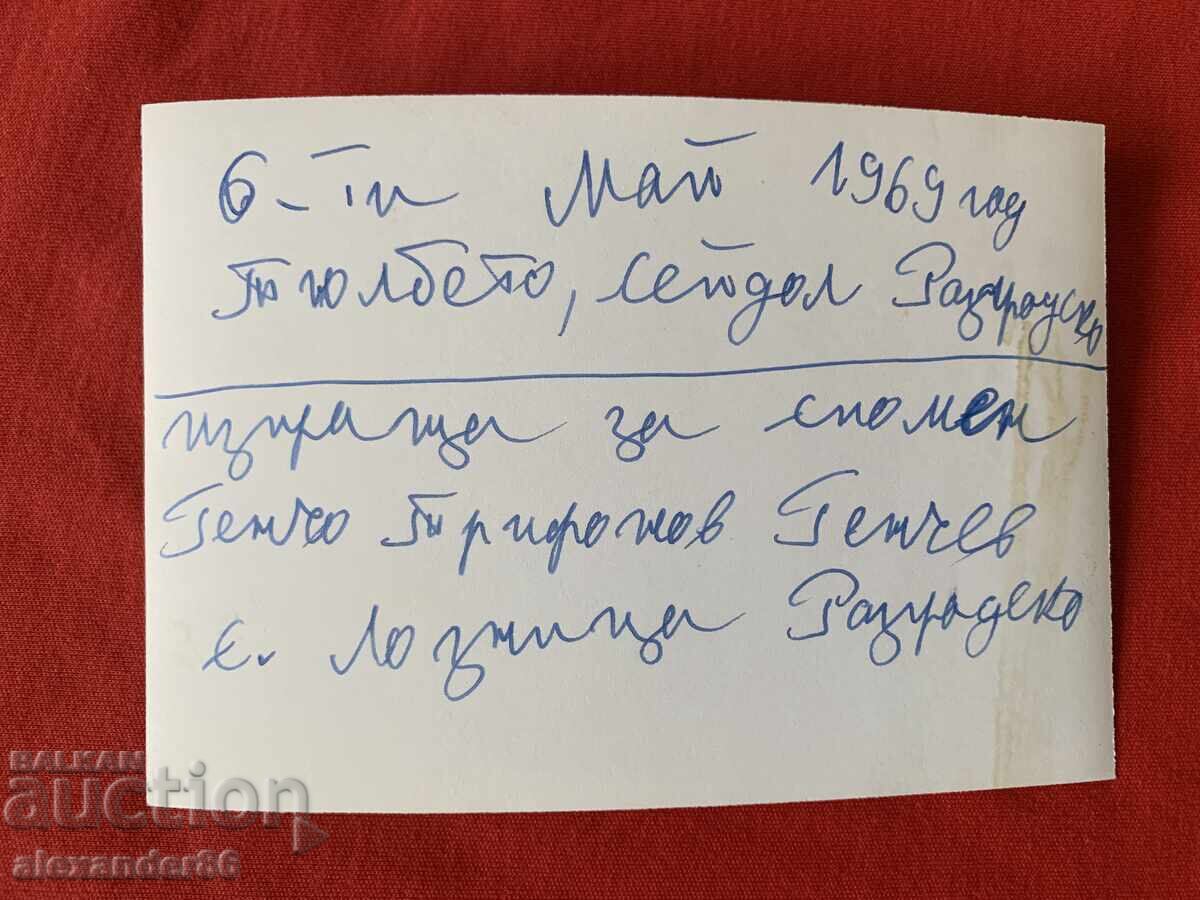 6-ти Май 1969 год
Тюлбето, Сейдол Разградско
изпраща за спомен
Генчо Трифонов Генчев
с. Лозница Разградско
BALKAN
auction
alexander86